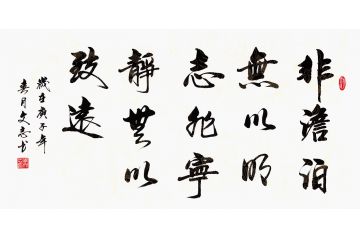 非澹泊
無以明
志非寧
靜無以
致遠
歲在庚子年
春月文志书